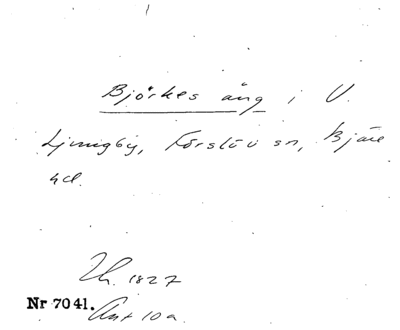 Björkes äng i V.
Ljungby, Förslöv sn, Bjäre
hd.
Th. 1827
Nr 7041.
Ant 10a